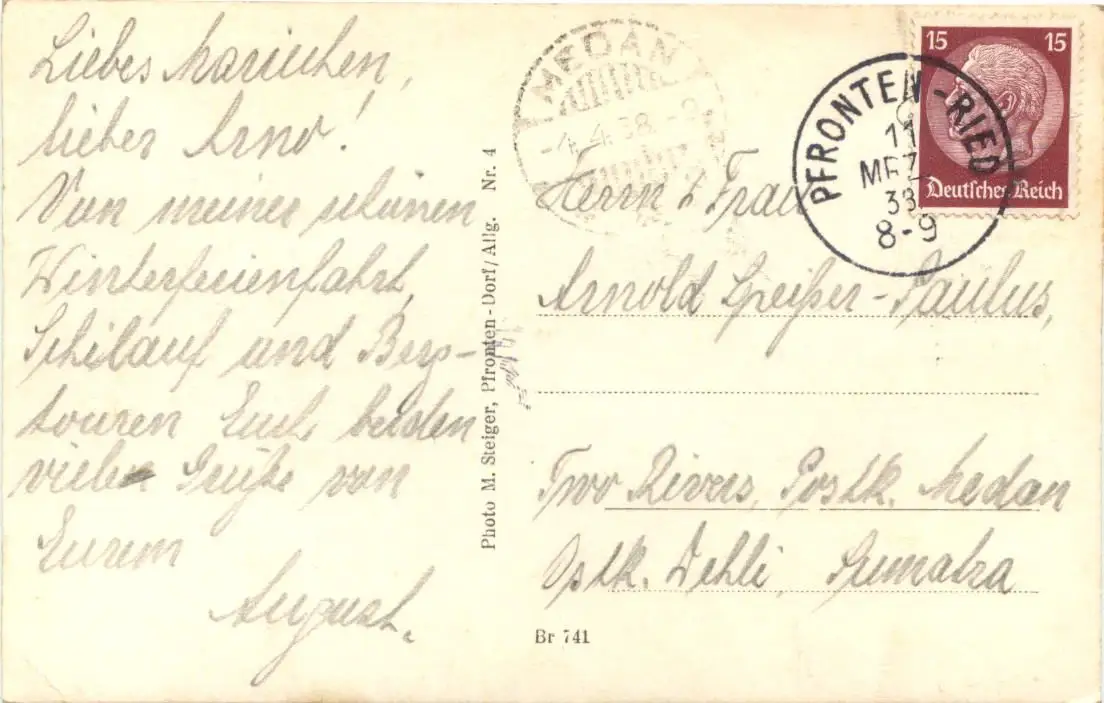 Liebes Mariechen,
lieber Arno!
Von meiner schönen
Winterferienfahrt,
Schilauf und Berg-
touren Euch beiden
viele Grüße von
Eurem
August.
Photo M. Steiger, Pfronten-Dorf/Allg. Nr. 4
MEDAN
-4.4.38.-9
15 15
Deutsches Reich
PFRONTEN-RIED
11
MRZ
38
8-9
Herrn & Frau
Arnold Speißer-Paulus,
Two Rivers, Postk. Medan
Ostk. Dehli, Sumatra
Br 741